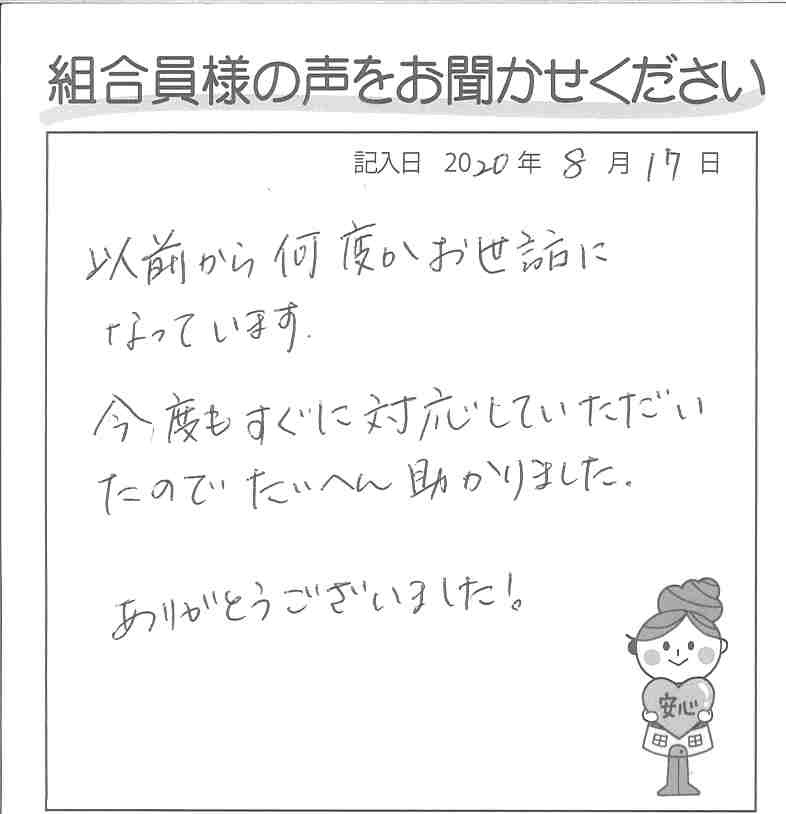 組合員様の声をお聞かせください
記入日 2020年 8月17日
以前から何度かお世話に
なっています.
今度もすぐに対応していただい
たのでたいへん助かりました。
ありがとうございました!
安心